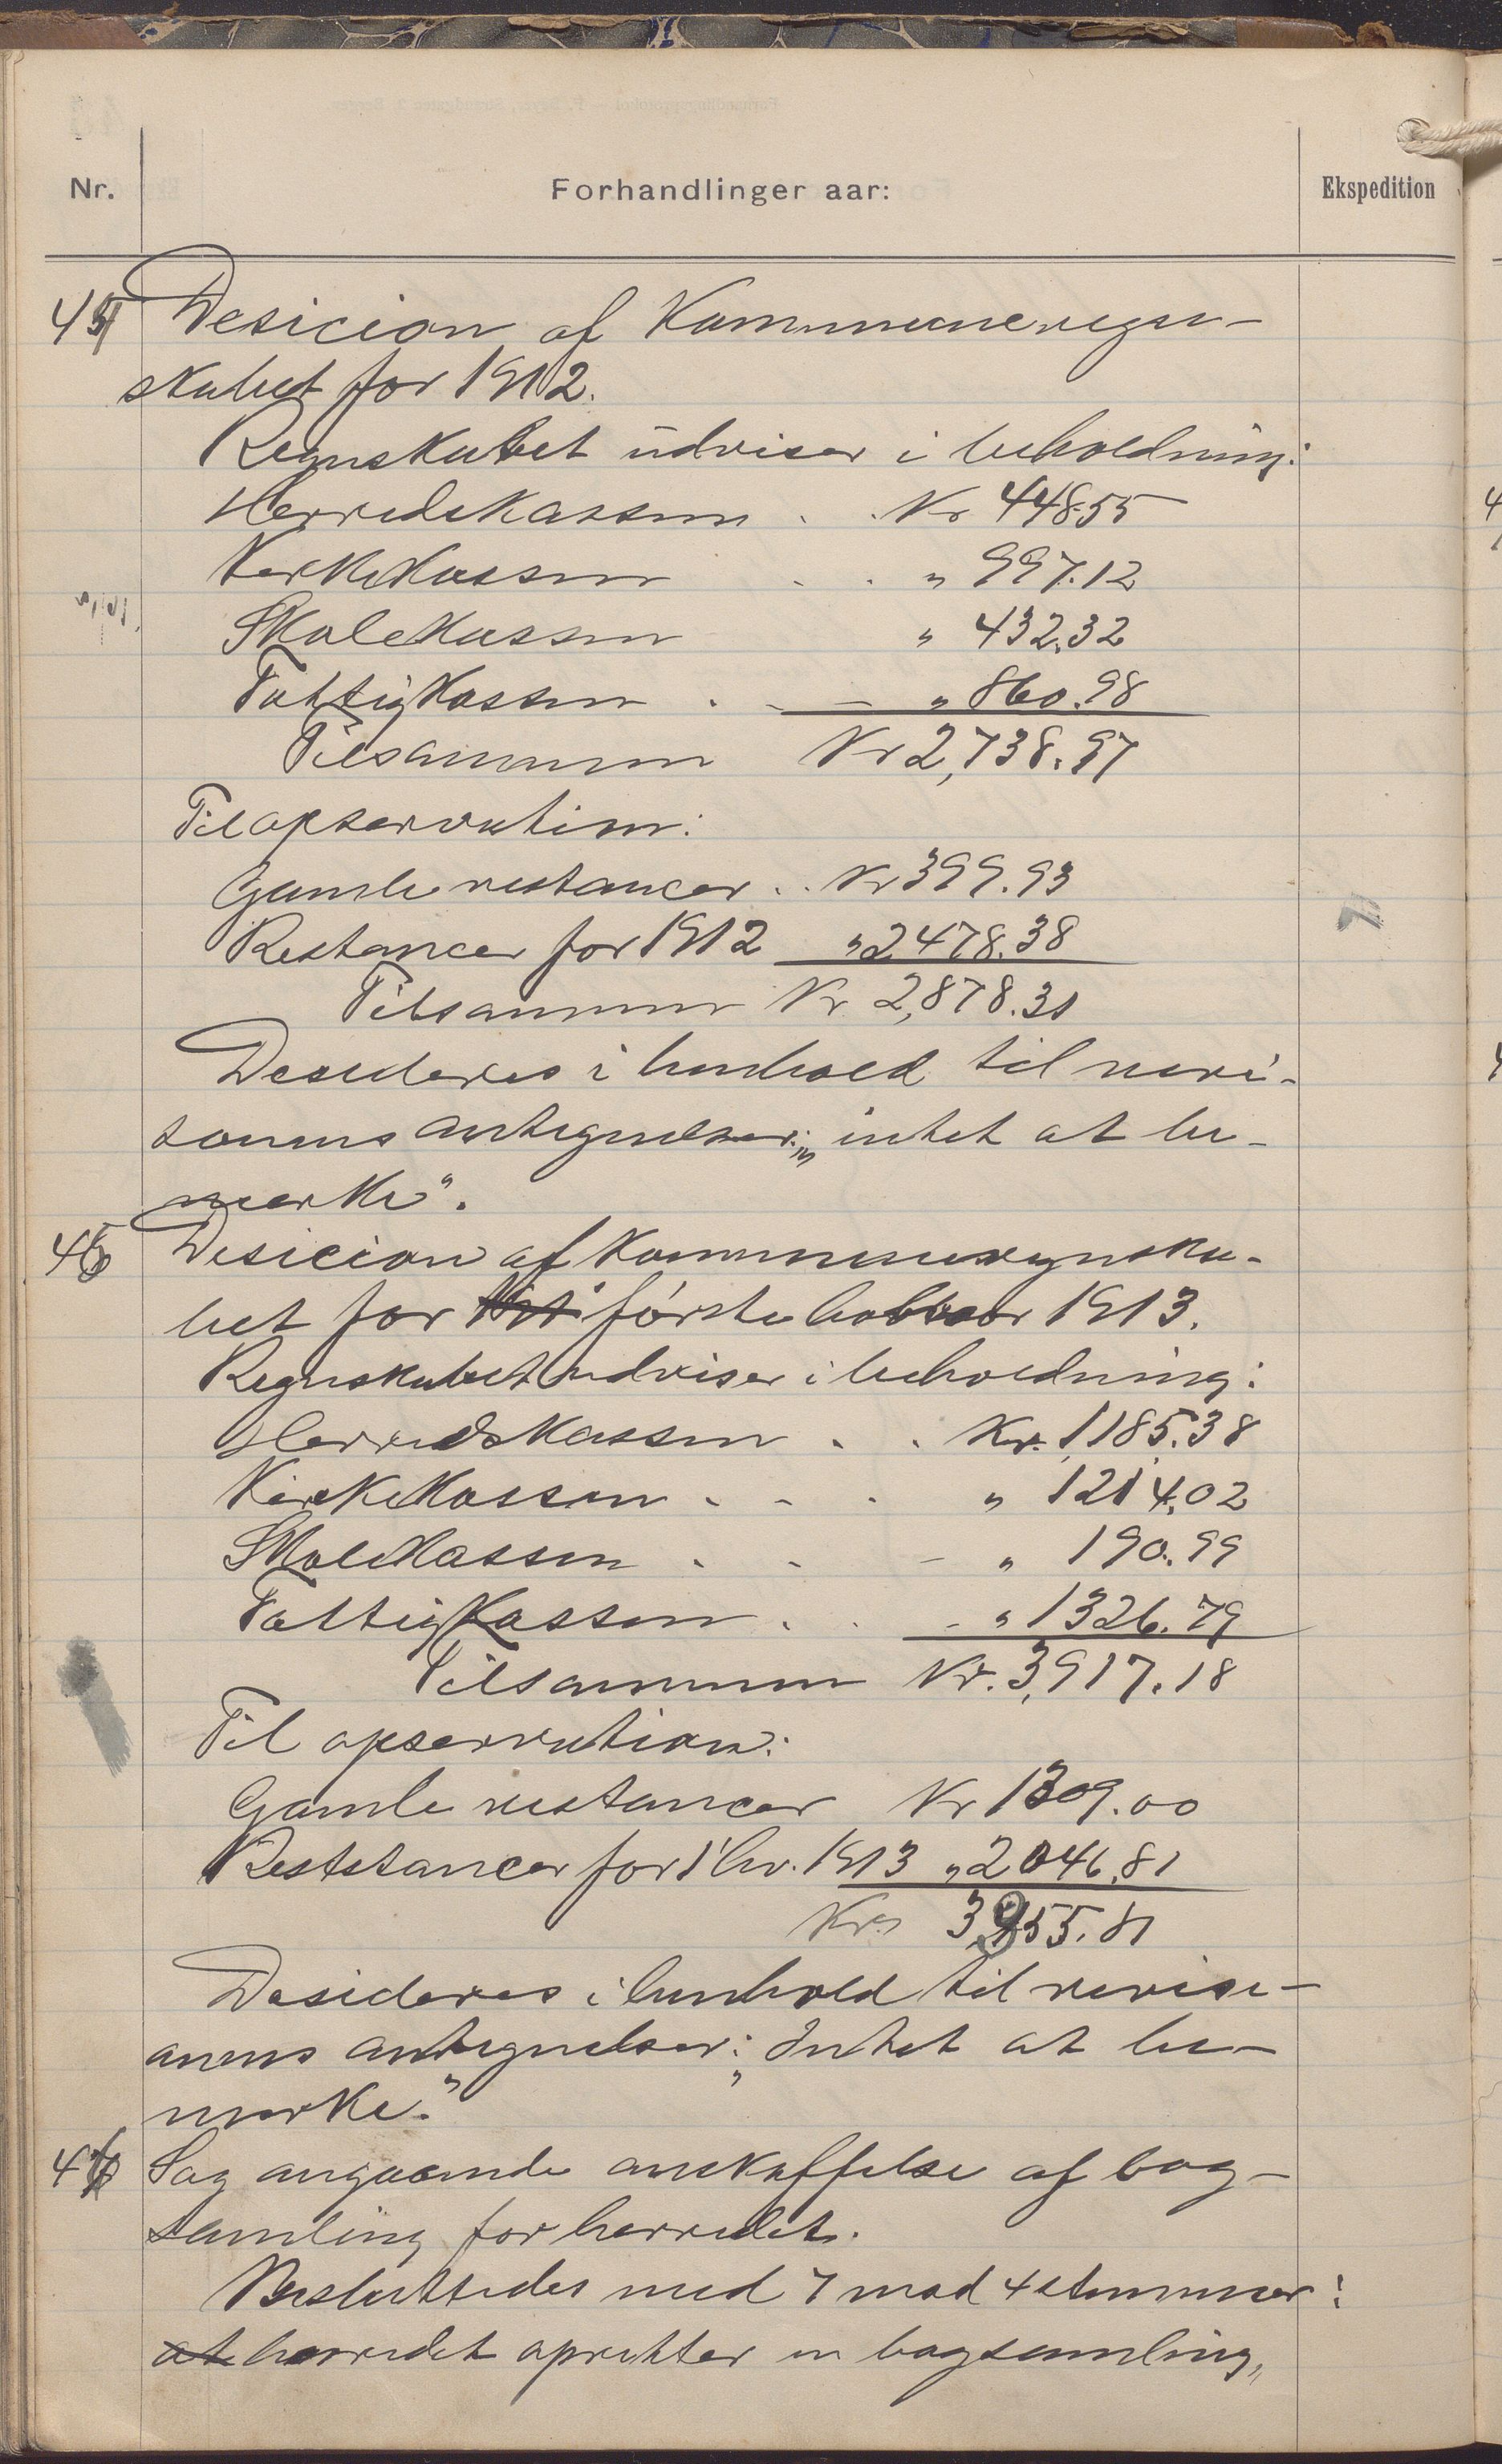 Nr.
Forhandlinger aar:
Ekspedition
45 Desicion af Kommuneregn-
skabet for 1912.
Regnskabet udviser i beholdning:
Herredskassen . . Kr 448.55
Kirkekassen . . " 997.12
Skolekassen " 432.32
Fattigkassen . - — " 860.98
Tilsammen Kr 2,738.97
Til opservation:
Gamle restancer . . Kr 399.93
Restancer for 1912 " 2478.38
Tilsammen Kr 2,878.31
Desideres i henhold til revi-
sonens antegnelser: „intet at be-
merke".
46 Desicion af Kommuneregnska-
bet for første halvaar 1913.
Regnskabet udviser i beholdning:
Herredskassen . . Kr. 1,185.38
Kirkekassen . - . " 1214.02
Skolekassen . - - " 190.99
Fattigkassen . . - " 1326.79
Tilsammen Kr. 3,917.18
Til opservation:
Gamle restancer Kr 1309.00
Reststancer for 1' hv. 1913 " 2046.81
Kr. 3,955.81
Desideres i henhold til revisi-
onens antegnelser: „Intet at be-
merke."
47 Sag angaaende anskaffelse af bog-
samling for herredet.
Besluttedes med 7 mod 4 stemmer:
at herredet opretter en bogsamling,